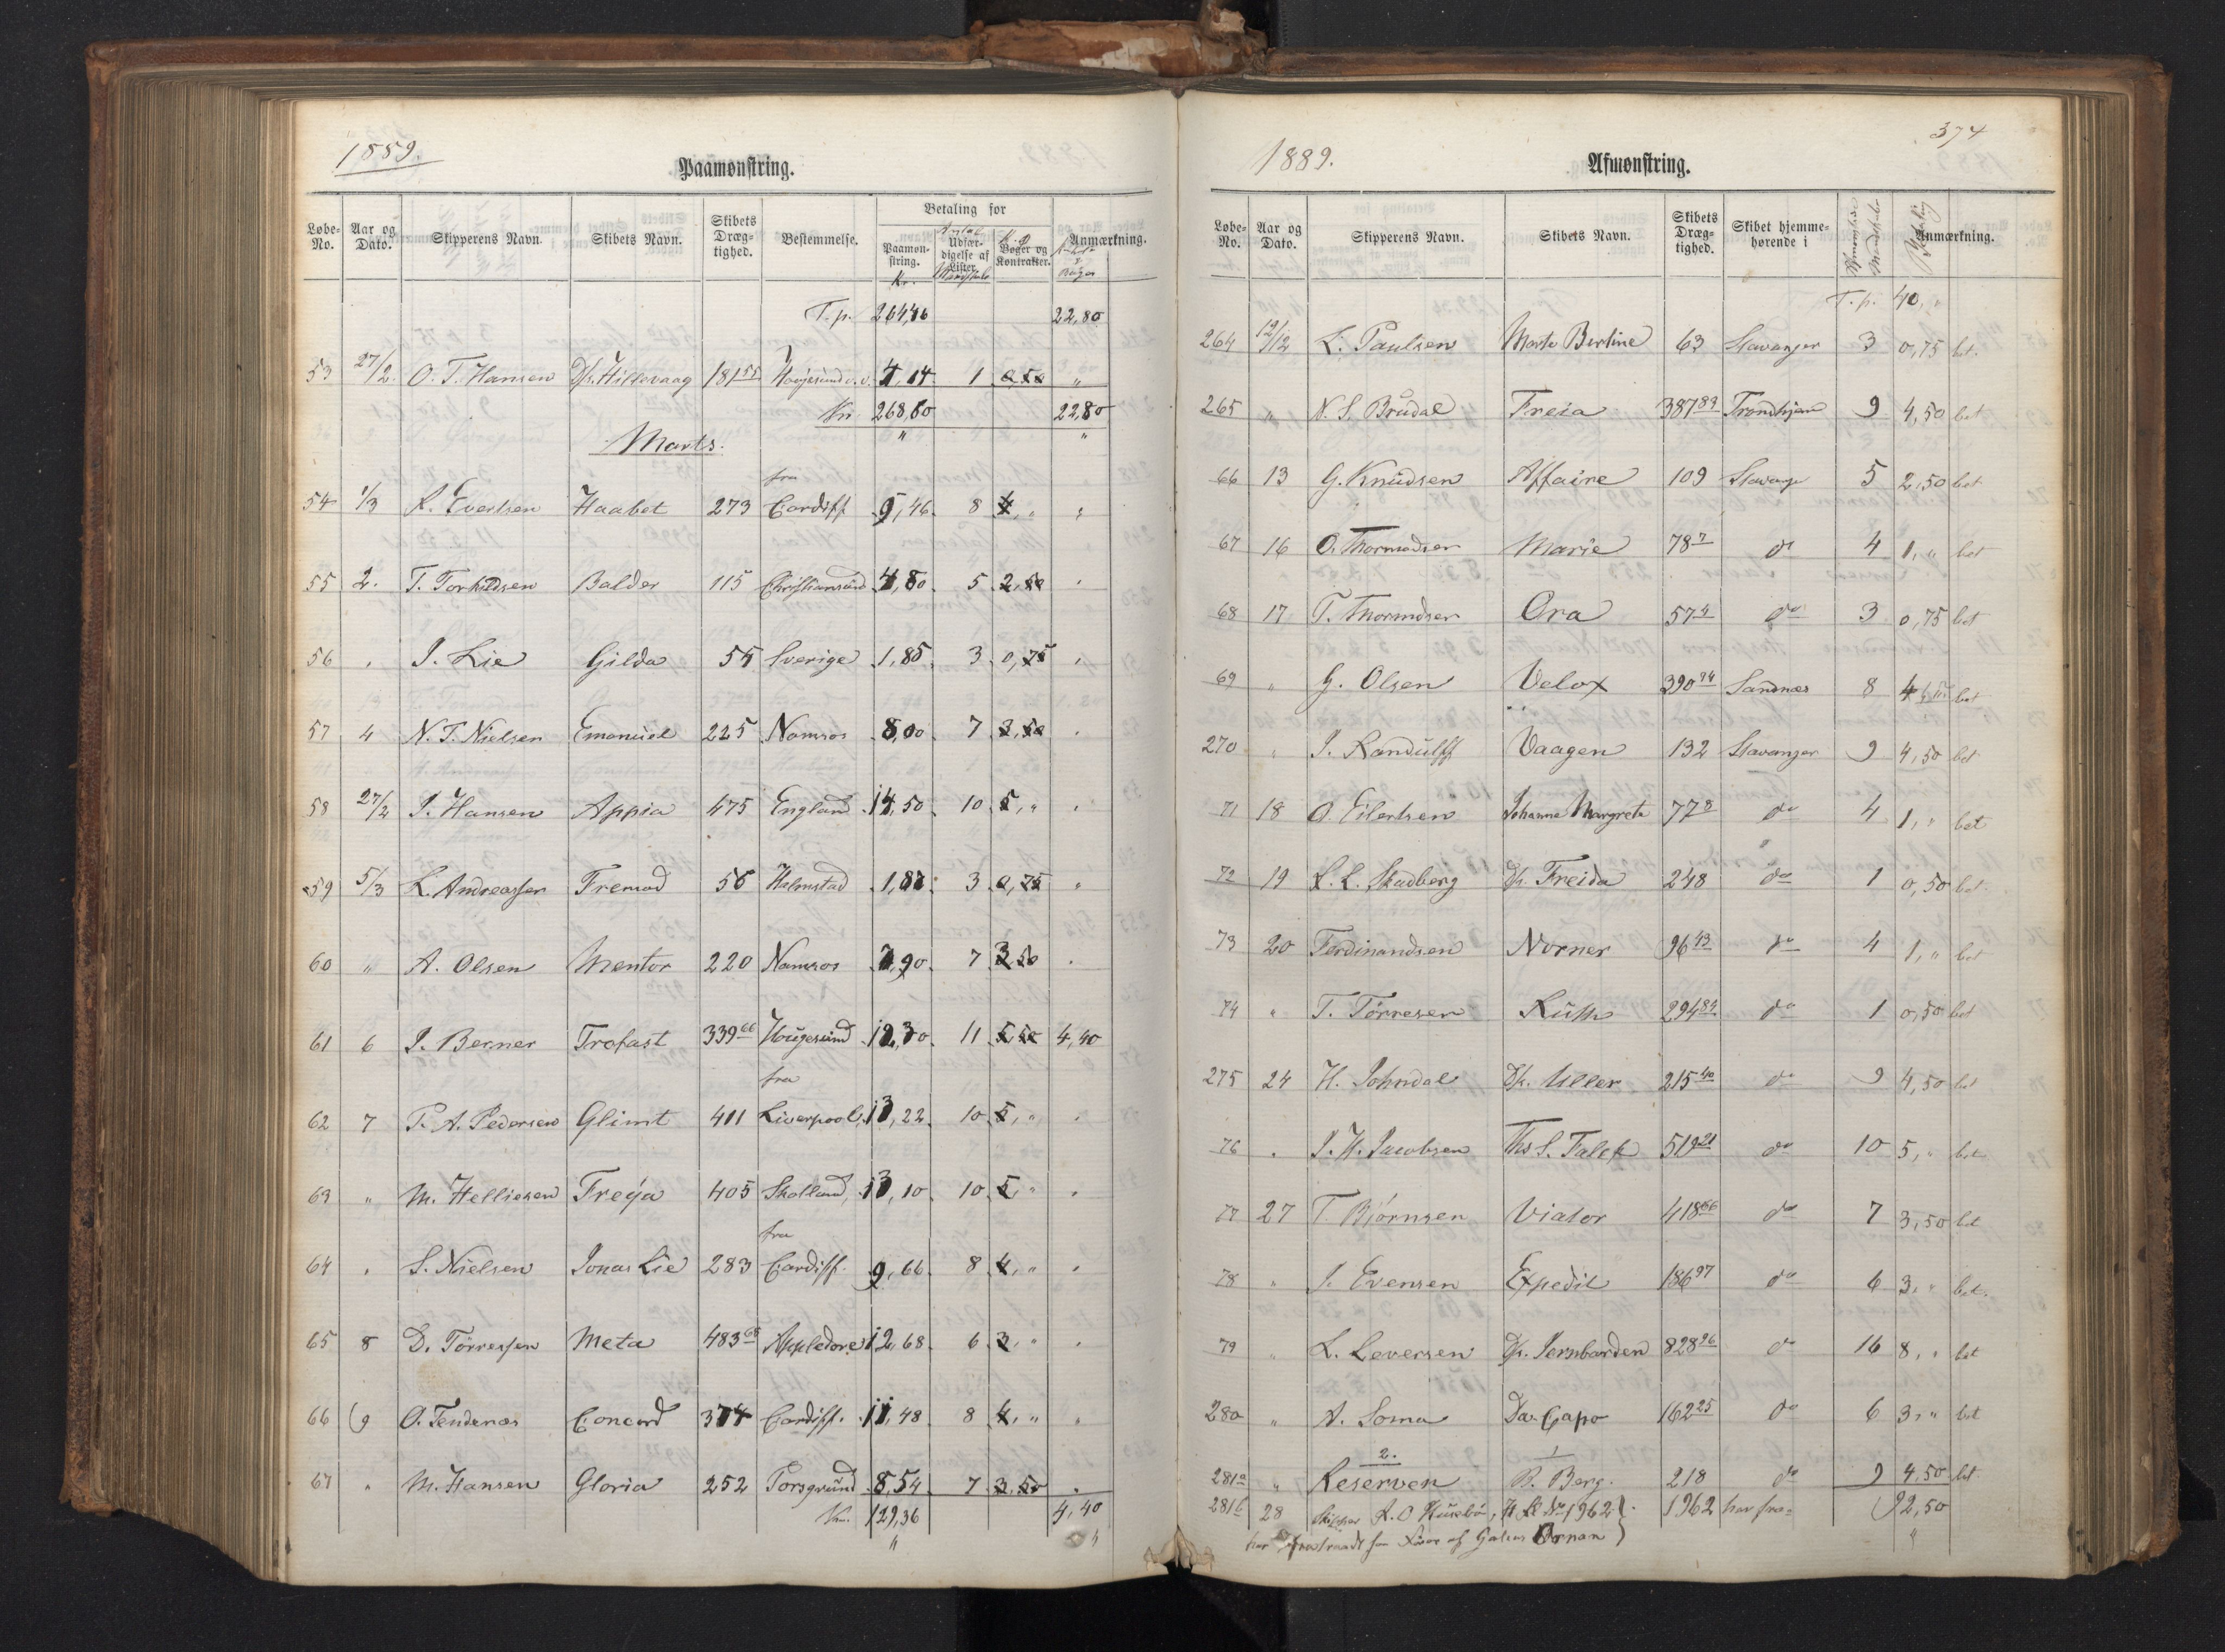 1889.
Paamønstring.
Løbe-No. Aar og Dato. Skipperens Navn. Skibets Navn. Skibets Dræg-tighed. Bestemmelse. Betaling for Paamøn-string. Udfær-digelse af Lister. Bøger og Kontrakter. Anmærkning.
Kr. Antal Mandskab Bøger
T. p. 264,46 22,80
53 27/2. O. T. Hansen D/s. Hillevaag 181 55 Hougesund o. v. 4,14 1 0,50 "
Kr. 268,60 22,80
Marts.
54 1/3 R. Evertsen Haabet 273 fra Cardiff 9,46 8 4, " "
55 2. T. Torkildsen Balder 115 Christiansund 4,80 5 2,50 "
56 " J. Lie Gilda 55 Sverige 1,85 3 0,75 "
57 4 N. T. Nielsen Emanuel 225 Namsos 8,00 7 3,50 "
58 27/2 J. Hansen Appia 475 England 14,50 10 5, " "
59 5/3 L. Andreassen Fremad 56 Halmstad 1,87 3 0,75 "
60 " A. Olsen Mentor 220 Namsos 7,90 7 3,50 "
61 6 J. Berner Trofast 339 66 Hougesund 12,30 11 5,50 4,40
62 7 P. A. Pedersen Glimt 411 fra Liverpool 13,22 10 5, " "
63 " M. Helliesen Freya 405 Skotland, 13,10 10 5, " "
64 " S. Nielsen Jonas Lie 283 fra Cardiff. 9,66 8 4, " "
65 8 D. Tørressen Meta 483 68 Appledore 12,68 6 3, " "
66 9 O. Tendenæs Concord 374 Cardiff. 11,48 8 4, " "
67 " M. Hansen Gloria 252 Porsgrund 8,54 7 3,50 "
Kr. 129,36 4,40
374
1889.
Afmønstring.
Løbe-No. Aar og Dato. Skipperens Navn. Skibets Navn. Skibets Dræg-tighed. Skibet hjemme-hørende i Anmærkning.
Mandskab Betaling
T. p. 40, "
264 12/12 L. Paulsen Marte Bertine 63 Stavanger 3 0,75 bet.
265 " N. S. Brudal Freia 387 89 Trondhjem 9 4,50 bet
66 13 G. Knudsen Affaire 109 Stavanger 5 2,50 bet
67 16 O. Thormodsen Marie 78 7 do 4 1, " bet
68 17 T. Thormodsen Ora 57 4 do 3 0,75 bet
69 " G. Olsen Velox 390 94 Sandnæs 8 4 bet
270 " J. Randulff Vaagen 132 Stavanger 9 4,50 bet
71 18 O. Eilertsen Johanne Margrete 77 8 do 4 1, " bet
72 19 L. L. Skadberg D/s. Freida 248 do 1 0,50 bet.
73 20 Ferdinandsen Norner 96 43 do 4 1, " bet
74 " T. Tørresen Ruth 294 84 do 1 0,50 bet
275 24 H. Johndal D/s. Uller 215 40 do 9 4,50 bet
76 " J. H. Jacobsen Ths S. Falck 519 21 do 10 5, " bet
77 27 T. Bjørnsen Viator 418 66 do 7 3,50 bet
78 " J. Evensen Expedit 186 97 do 6 3, " bet.
79 " L. Leversen D/s. Jernbarden 828 26 do 16 8, " bet
280 " A. Soma Da Capo 162 25 do 6 3, " bet
2. 1
281a " Reserven B. Berg. 218 do 9 4,50 bet
281b 28 Skipper A. O. Husebø, No 1962 1962 har fra- 92,50
har fratraadt som Fører af Galeas Ornan